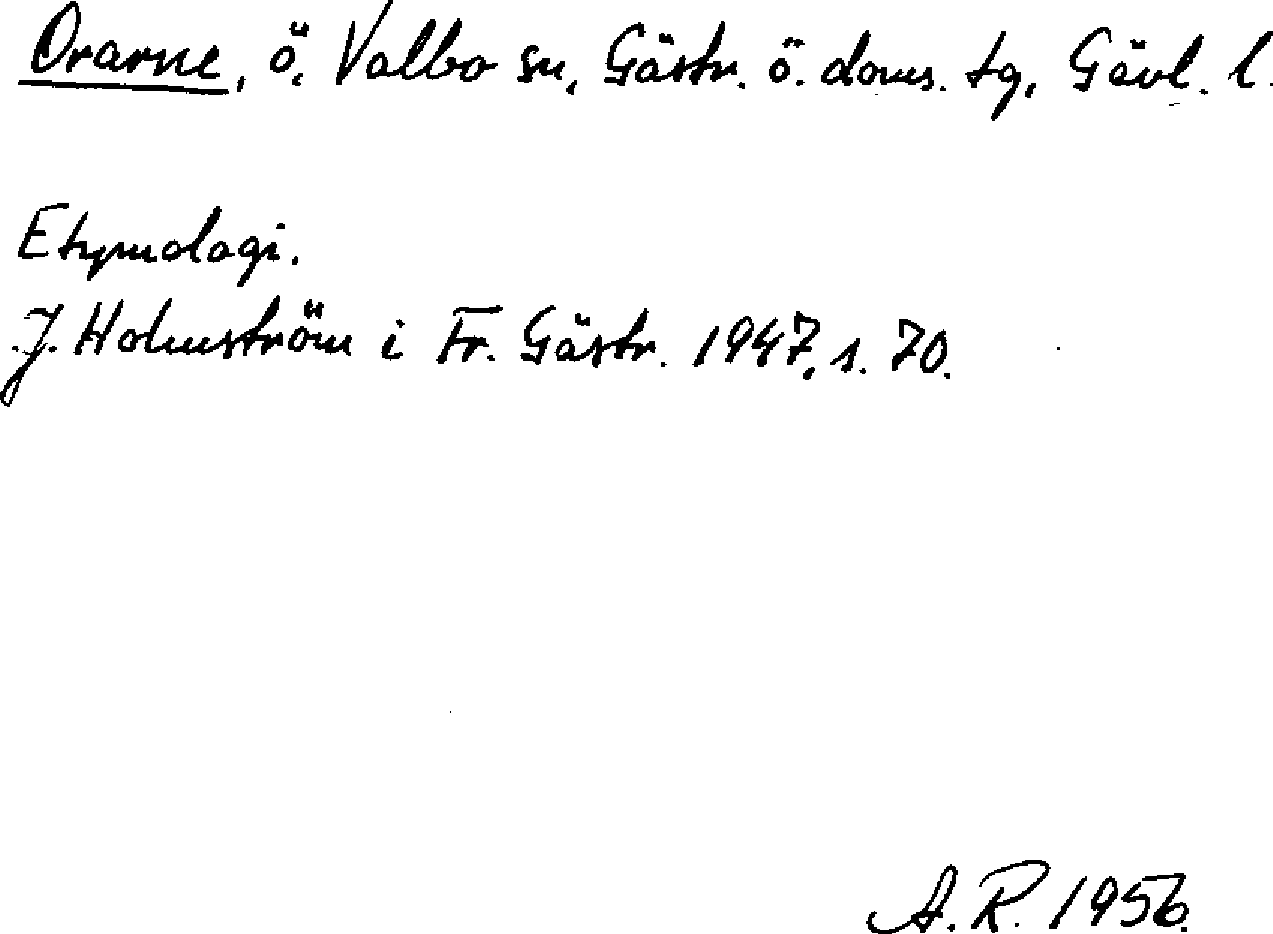 Orarne, ö, Valbo sn, Gästr. ö. doms. tg, Gävl. l.
Etymologi.
J. Holmström i Fr. Gästr. 1947, s. 70.
A. R. 1956.